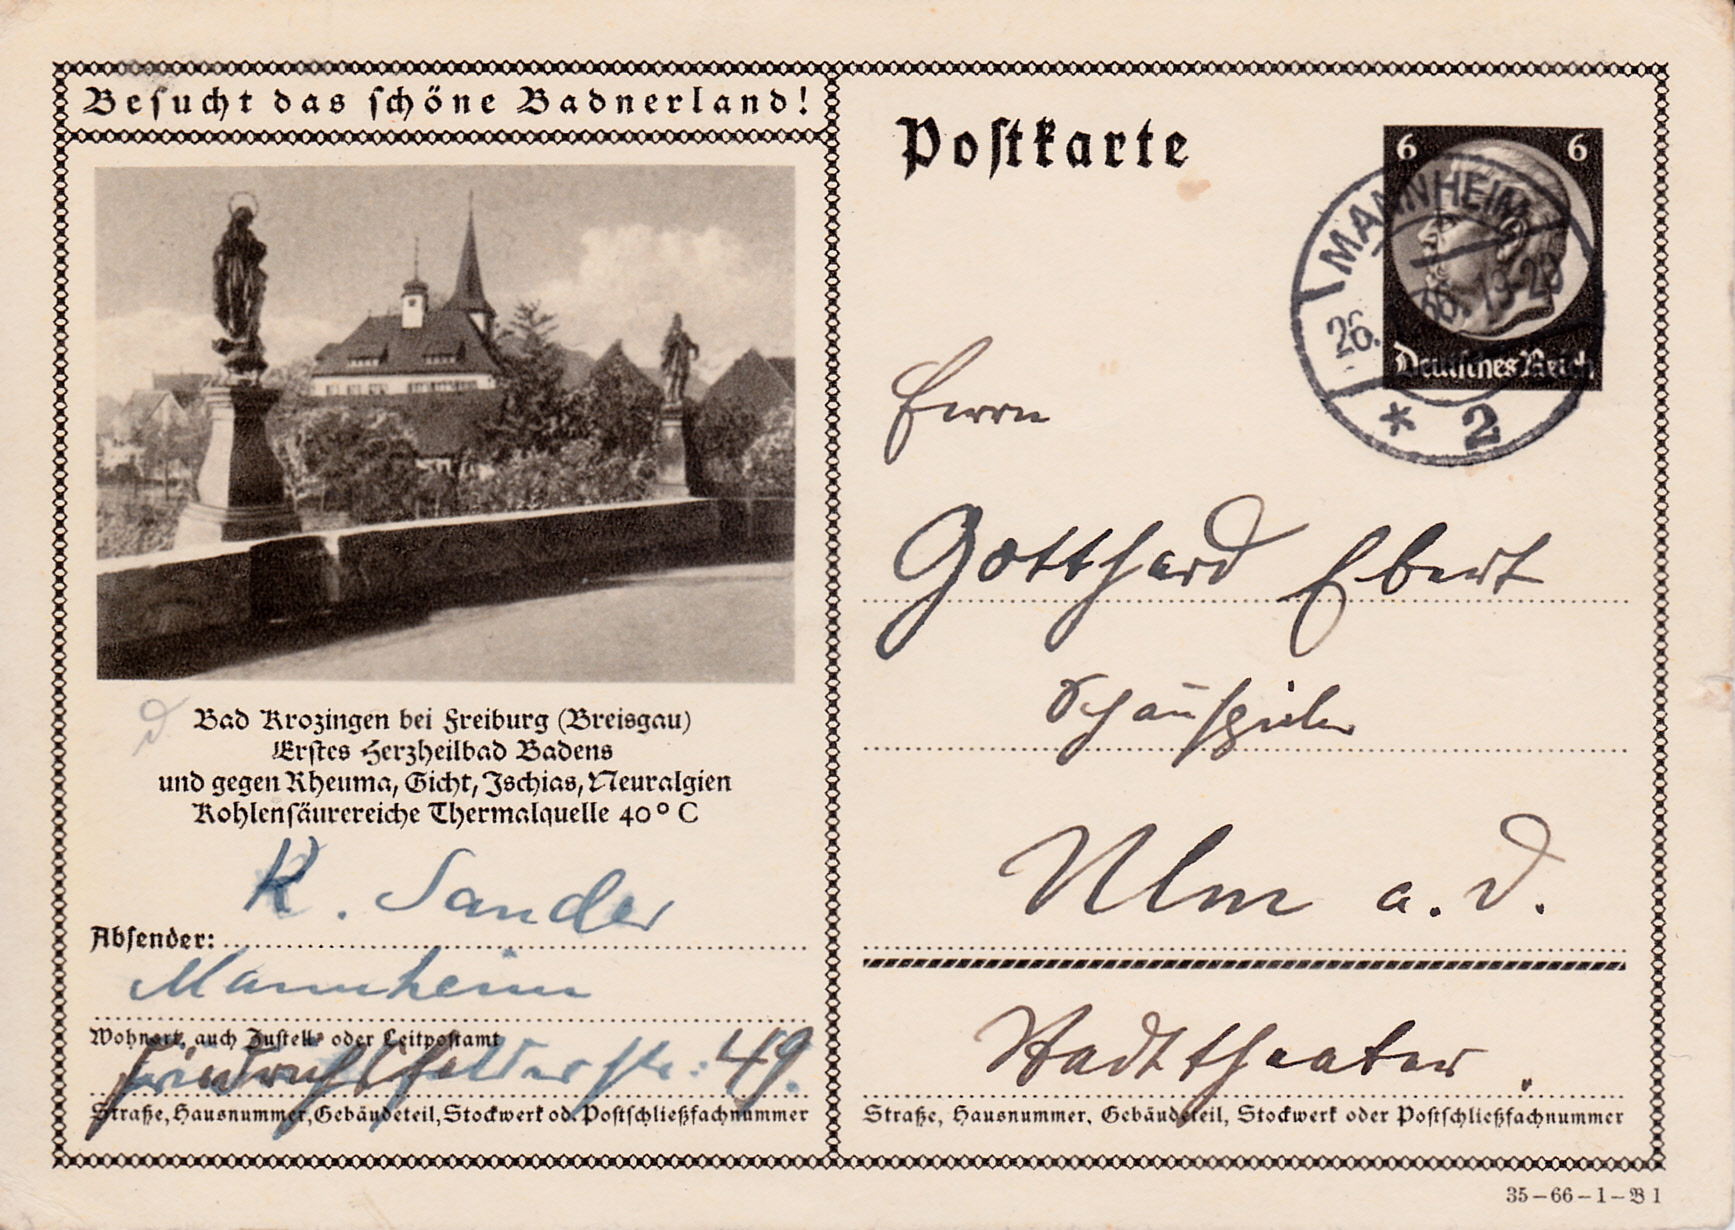 Besucht das schöne Badnerland!
Bad Krozingen bei Freiburg (Breisgau)
Erstes Herzheilbad Badens
und gegen Rheuma, Gicht, Ischias, Neuralgien
Kohlensäurereiche Thermalquelle 40° C
K. Sander
Absender:
Mannheim
Wohnort, auch Zustell- oder Leitpostamt
Friedrichsfelderstr. 49.
Straße, Hausnummer, Gebäudeteil, Stockwerk od. Postschließfachnummer
Postkarte
6 6
Deutsches Reich
MANNHEIM
26. 36. 19-20
* 2
Herrn
Gotthard Ebert
Schauspieler
Ulm a. D.
Stadttheater.
Straße, Hausnummer, Gebäudeteil, Stockwerk oder Postschließfachnummer
35-66-1-B 1